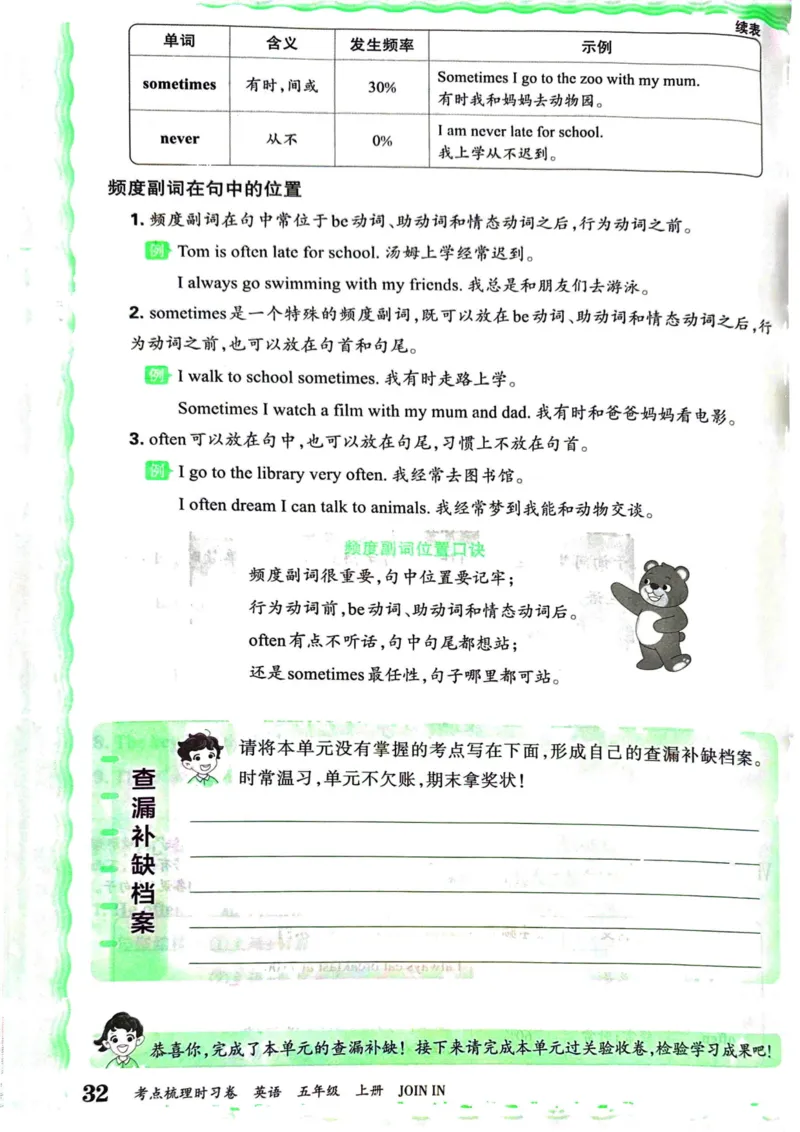 续表
单词 含义 发生频率 示例
sometimes 有时,间或 30% Sometimes I go to the zoo with my mum.
有时我和妈妈去动物园。
never 从不 0% I am never late for school.
我上学从不迟到。
频度副词在句中的位置
1. 频度副词在句中常位于be动词、助动词和情态动词之后,行为动词之前。
例 Tom is often late for school. 汤姆上学经常迟到。
I always go swimming with my friends. 我总是和朋友们去游泳。
2. sometimes是一个特殊的频度副词,既可以放在be动词、助动词和情态动词之后,行
为动词之前,也可以放在句首和句尾。
例 I walk to school sometimes. 我有时走路上学。
Sometimes I watch a film with my mum and dad. 我有时和爸爸妈妈看电影。
3. often可以放在句中,也可以放在句尾,习惯上不放在句首。
例 I go to the library very often. 我经常去图书馆。
I often dream I can talk to animals. 我经常梦到我能和动物交谈。
频度副词位置口诀
频度副词很重要,句中位置要记牢;
行为动词前,be动词、助动词和情态动词后。
often有点不听话,句中句尾都想站;
还是sometimes最任性,句子哪里都可站。
查漏补缺档案
请将本单元没有掌握的考点写在下面,形成自己的查漏补缺档案。
时常温习,单元不欠账,期末拿奖状!
恭喜你,完成了本单元的查漏补缺!接下来请完成本单元过关验收卷,检验学习成果吧!
32 考点梳理时习卷 英语 五年级 上册 JOIN IN